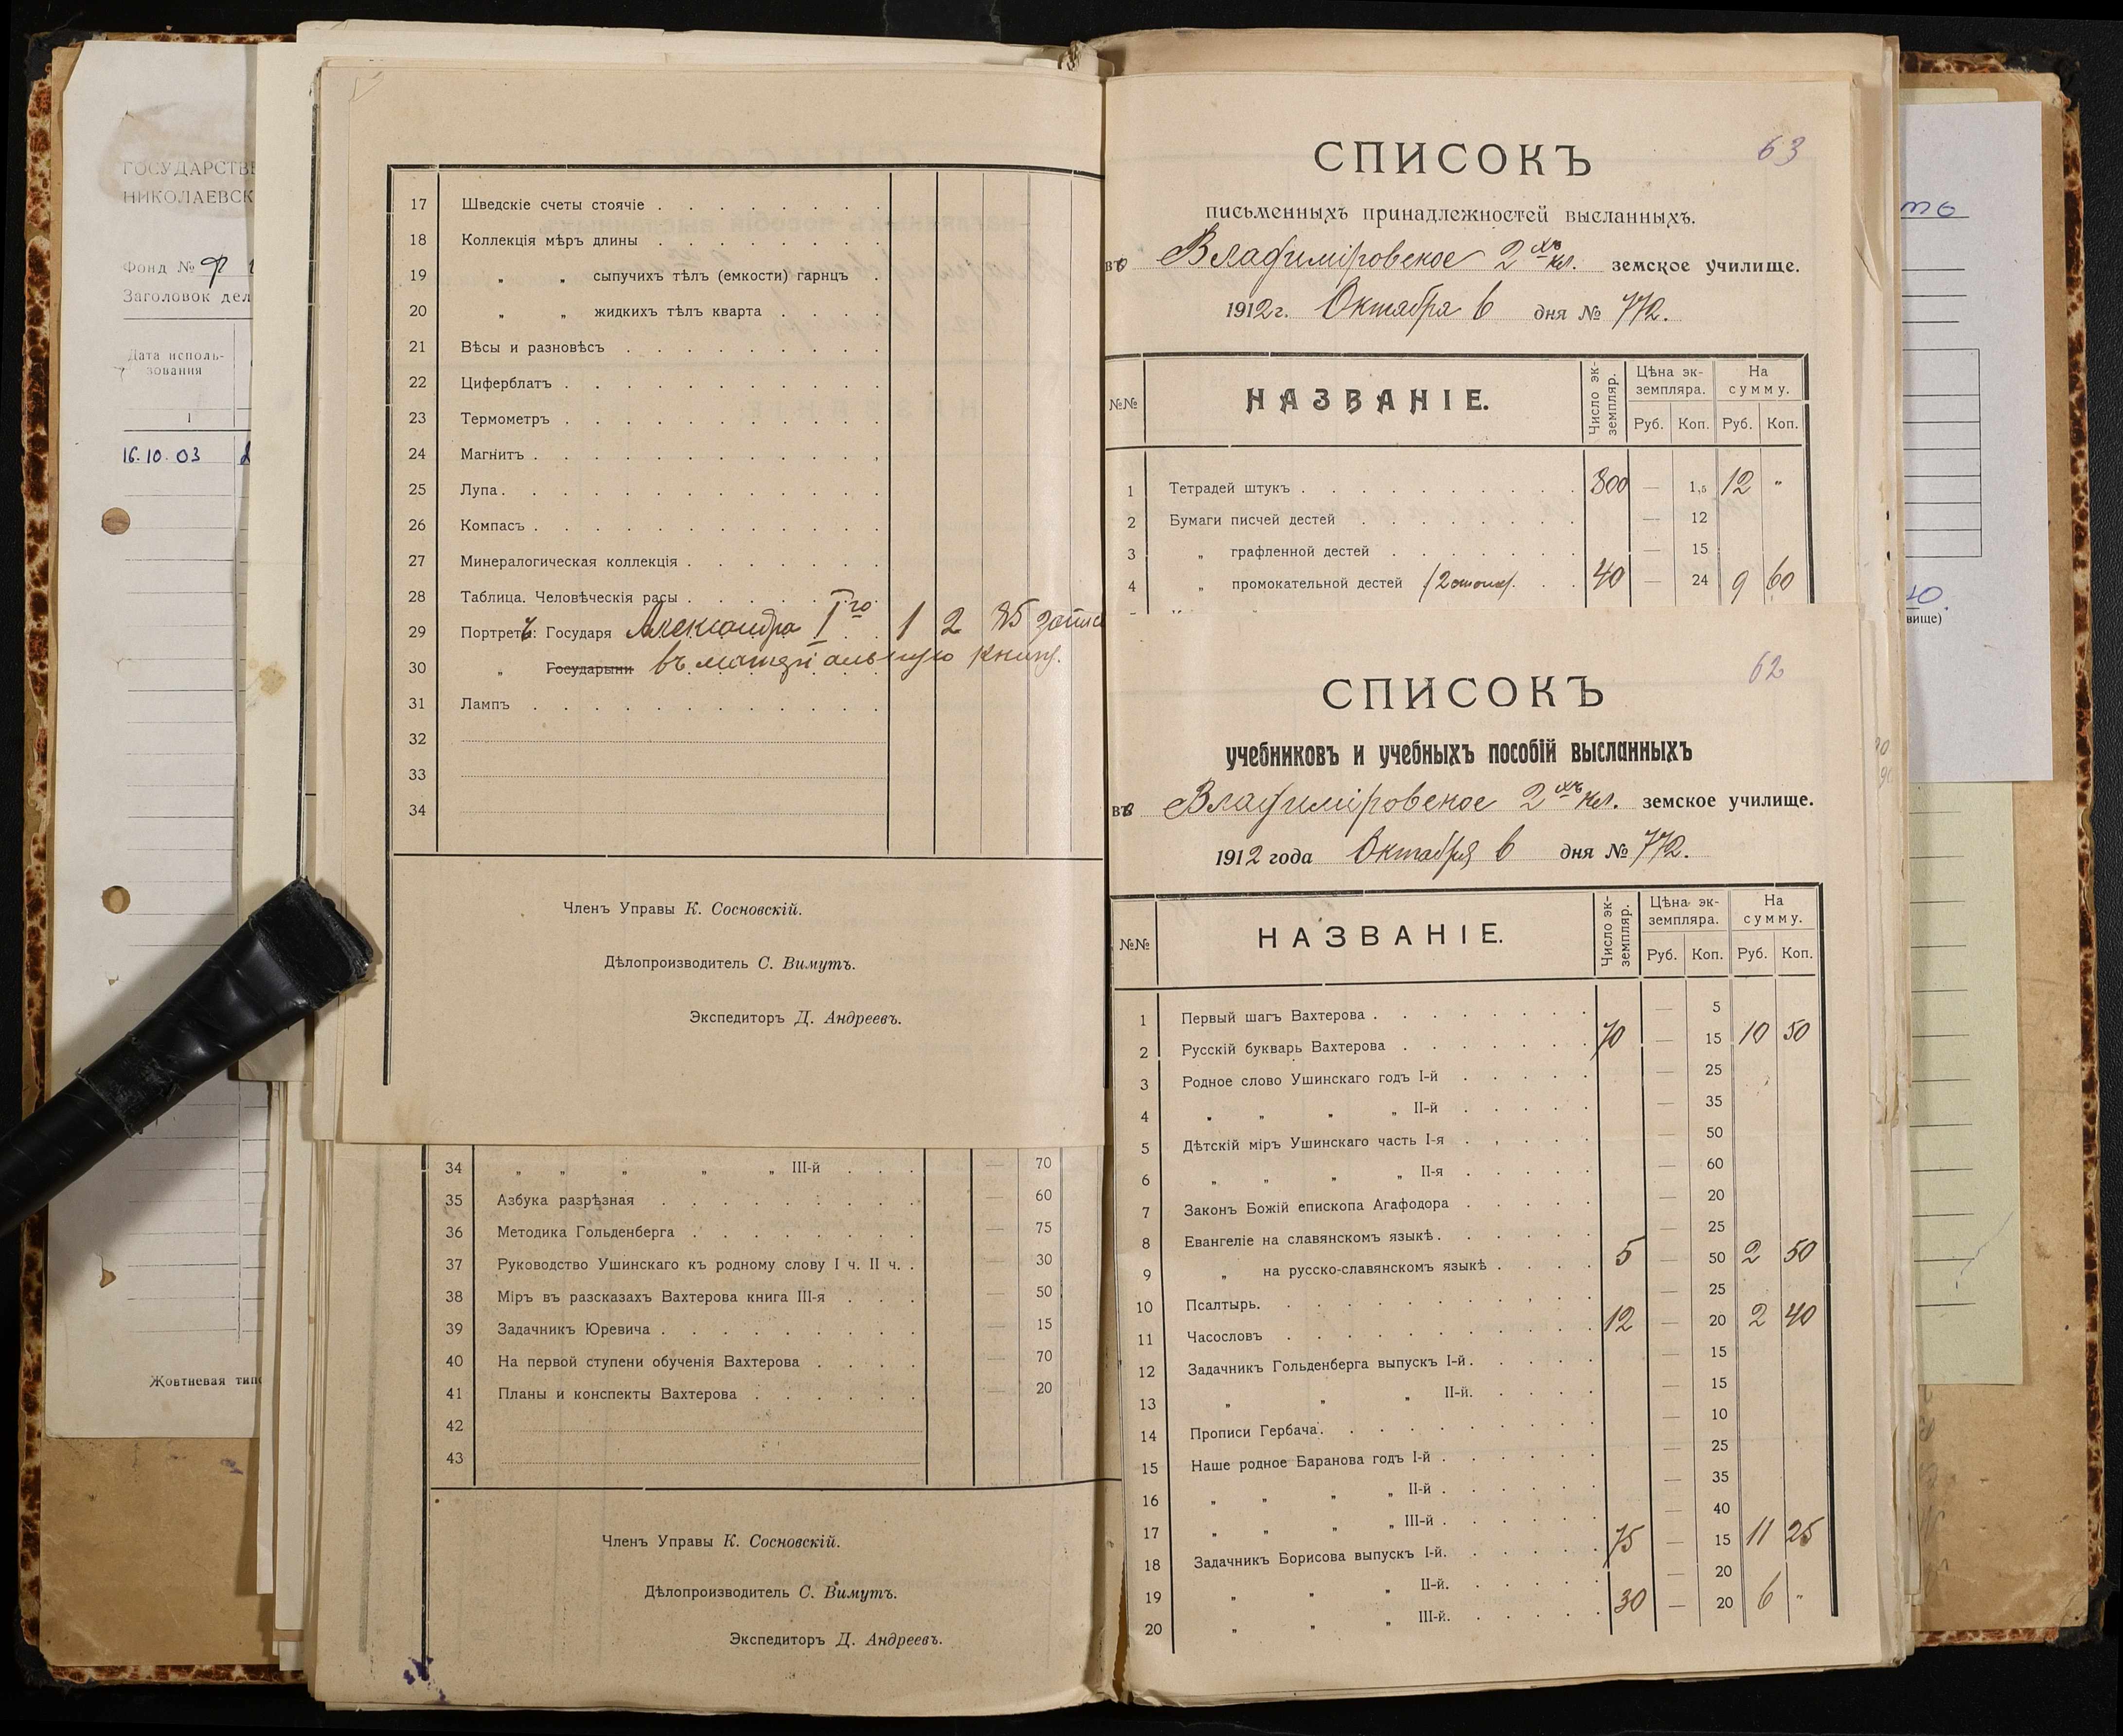 ГОСУДАРСТВЕ
НИКОЛАЕВСК
Фонд №
Заголовок дел
Дата исполь-
зования
1
16.10.03
Жовтневая типо
17 Шведскіе счеты стоячіе
18 Коллекція мѣръ длины
19 „ „ сыпучихъ тѣлъ (емкости) гарнцъ
20 „ „ жидкихъ тѣлъ кварта
21 Вѣсы и разновѣсъ
22 Циферблатъ
23 Термометръ
24 Магнитъ
25 Лупа
26 Компасъ
27 Минералогическая коллекція
28 Таблица. Человѣческія расы
29 Портретъ: Государя Александра I го 1 2 85
30 „ Государыни въ матеріальную книгу.
31 Лампъ
32
33
34
Членъ Управы К. Сосновскій.
Дѣлопроизводитель С. Вимутъ.
Экспедиторъ Д. Андреевъ.
34 „ „ „ „ „ III-й — 70
35 Азбука разрѣзная — 60
36 Методика Гольденберга — 75
37 Руководство Ушинскаго къ родному слову I ч. II ч. — 30
38 Міръ въ разсказахъ Вахтерова книга III-я — 50
39 Задачникъ Юревича — 15
40 На первой ступени обученія Вахтерова — 70
41 Планы и конспекты Вахтерова — 20
42
43
Членъ Управы К. Сосновскій.
Дѣлопроизводитель С. Вимутъ.
Экспедиторъ Д. Андреевъ.
63
СПИСОКЪ
письменныхъ принадлежностей высланныхъ.
во Владиміровское 2 хъ кл. земское училище.
1912 г. Октября 6 дня № 772.
№№ НАЗВАНІЕ. Число эк-земпляр. Цѣна эк-земпляра. На сумму.
Руб. Коп. Руб. Коп.
1 Тетрадей штукъ 800 — 1,5 12 „
2 Бумаги писчей дестей — 12
3 „ графленной дестей — 15
4 „ промокательной дестей 40 — 24 9 60
62
СПИСОКЪ
учебниковъ и учебныхъ пособій высланныхъ
во Владиміровское 2 хъ кл. земское училище.
1912 года Октября 6 дня № 772.
№№ НАЗВАНІЕ. Число эк-земпляр. Цѣна эк-земпляра. На сумму.
Руб. Коп. Руб. Коп.
1 Первый шагъ Вахтерова — 5
2 Русскій букварь Вахтерова 70 — 15 10 50
3 Родное слово Ушинскаго годъ I-й — 25
4 „ „ „ „ II-й — 35
5 Дѣтскій міръ Ушинскаго часть I-я — 50
6 „ „ „ „ II-я — 60
7 Законъ Божій епископа Агафодора — 20
8 Евангеліе на славянскомъ языкѣ — 25
9 „ на русско-славянскомъ языкѣ 5 — 50 2 50
10 Псалтырь — 25
11 Часословъ 12 — 20 2 40
12 Задачникъ Гольденберга выпускъ I-й. — 15
13 „ „ „ II-й. — 15
14 Прописи Гербача — 10
15 Наше родное Баранова годъ I-й — 25
16 „ „ „ „ II-й — 35
17 „ „ „ „ III-й — 40
18 Задачникъ Борисова выпускъ I-й. 75 — 15 11 25
19 „ „ „ II-й. — 20
20 „ „ „ III-й. 30 — 20 6 „
вище)